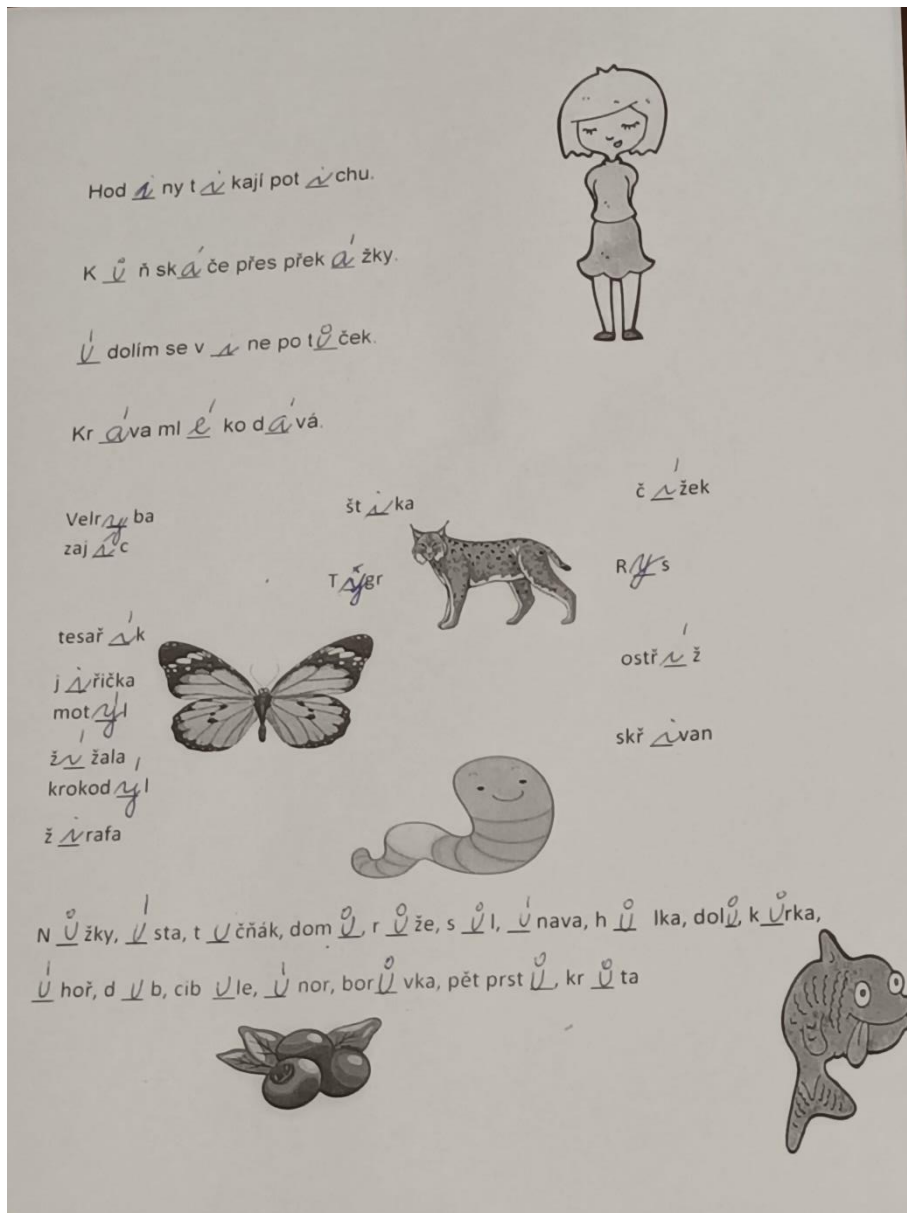 Hod i ny t i kají pot i chu.
K ů ň sk á če přes přek á žky.
Ú dolím se v i ne po tů ček.
Kr á va ml é ko d á vá.
Velr y ba
zaj í c
št i ka
č í žek
T y gr
R y s
tesař í k
j i řička
mot ý l
ž í žala
krokod ý l
ž i rafa
ostř í ž
skř i van
N ů žky, ú sta, t u čňák, dom ů, r ů že, s ů l, ú nava, h ů lka, dolů, k ů rka,
ú hoř, d u b, cib u le, ú nor, bor ů vka, pět prst ů, kr ů ta